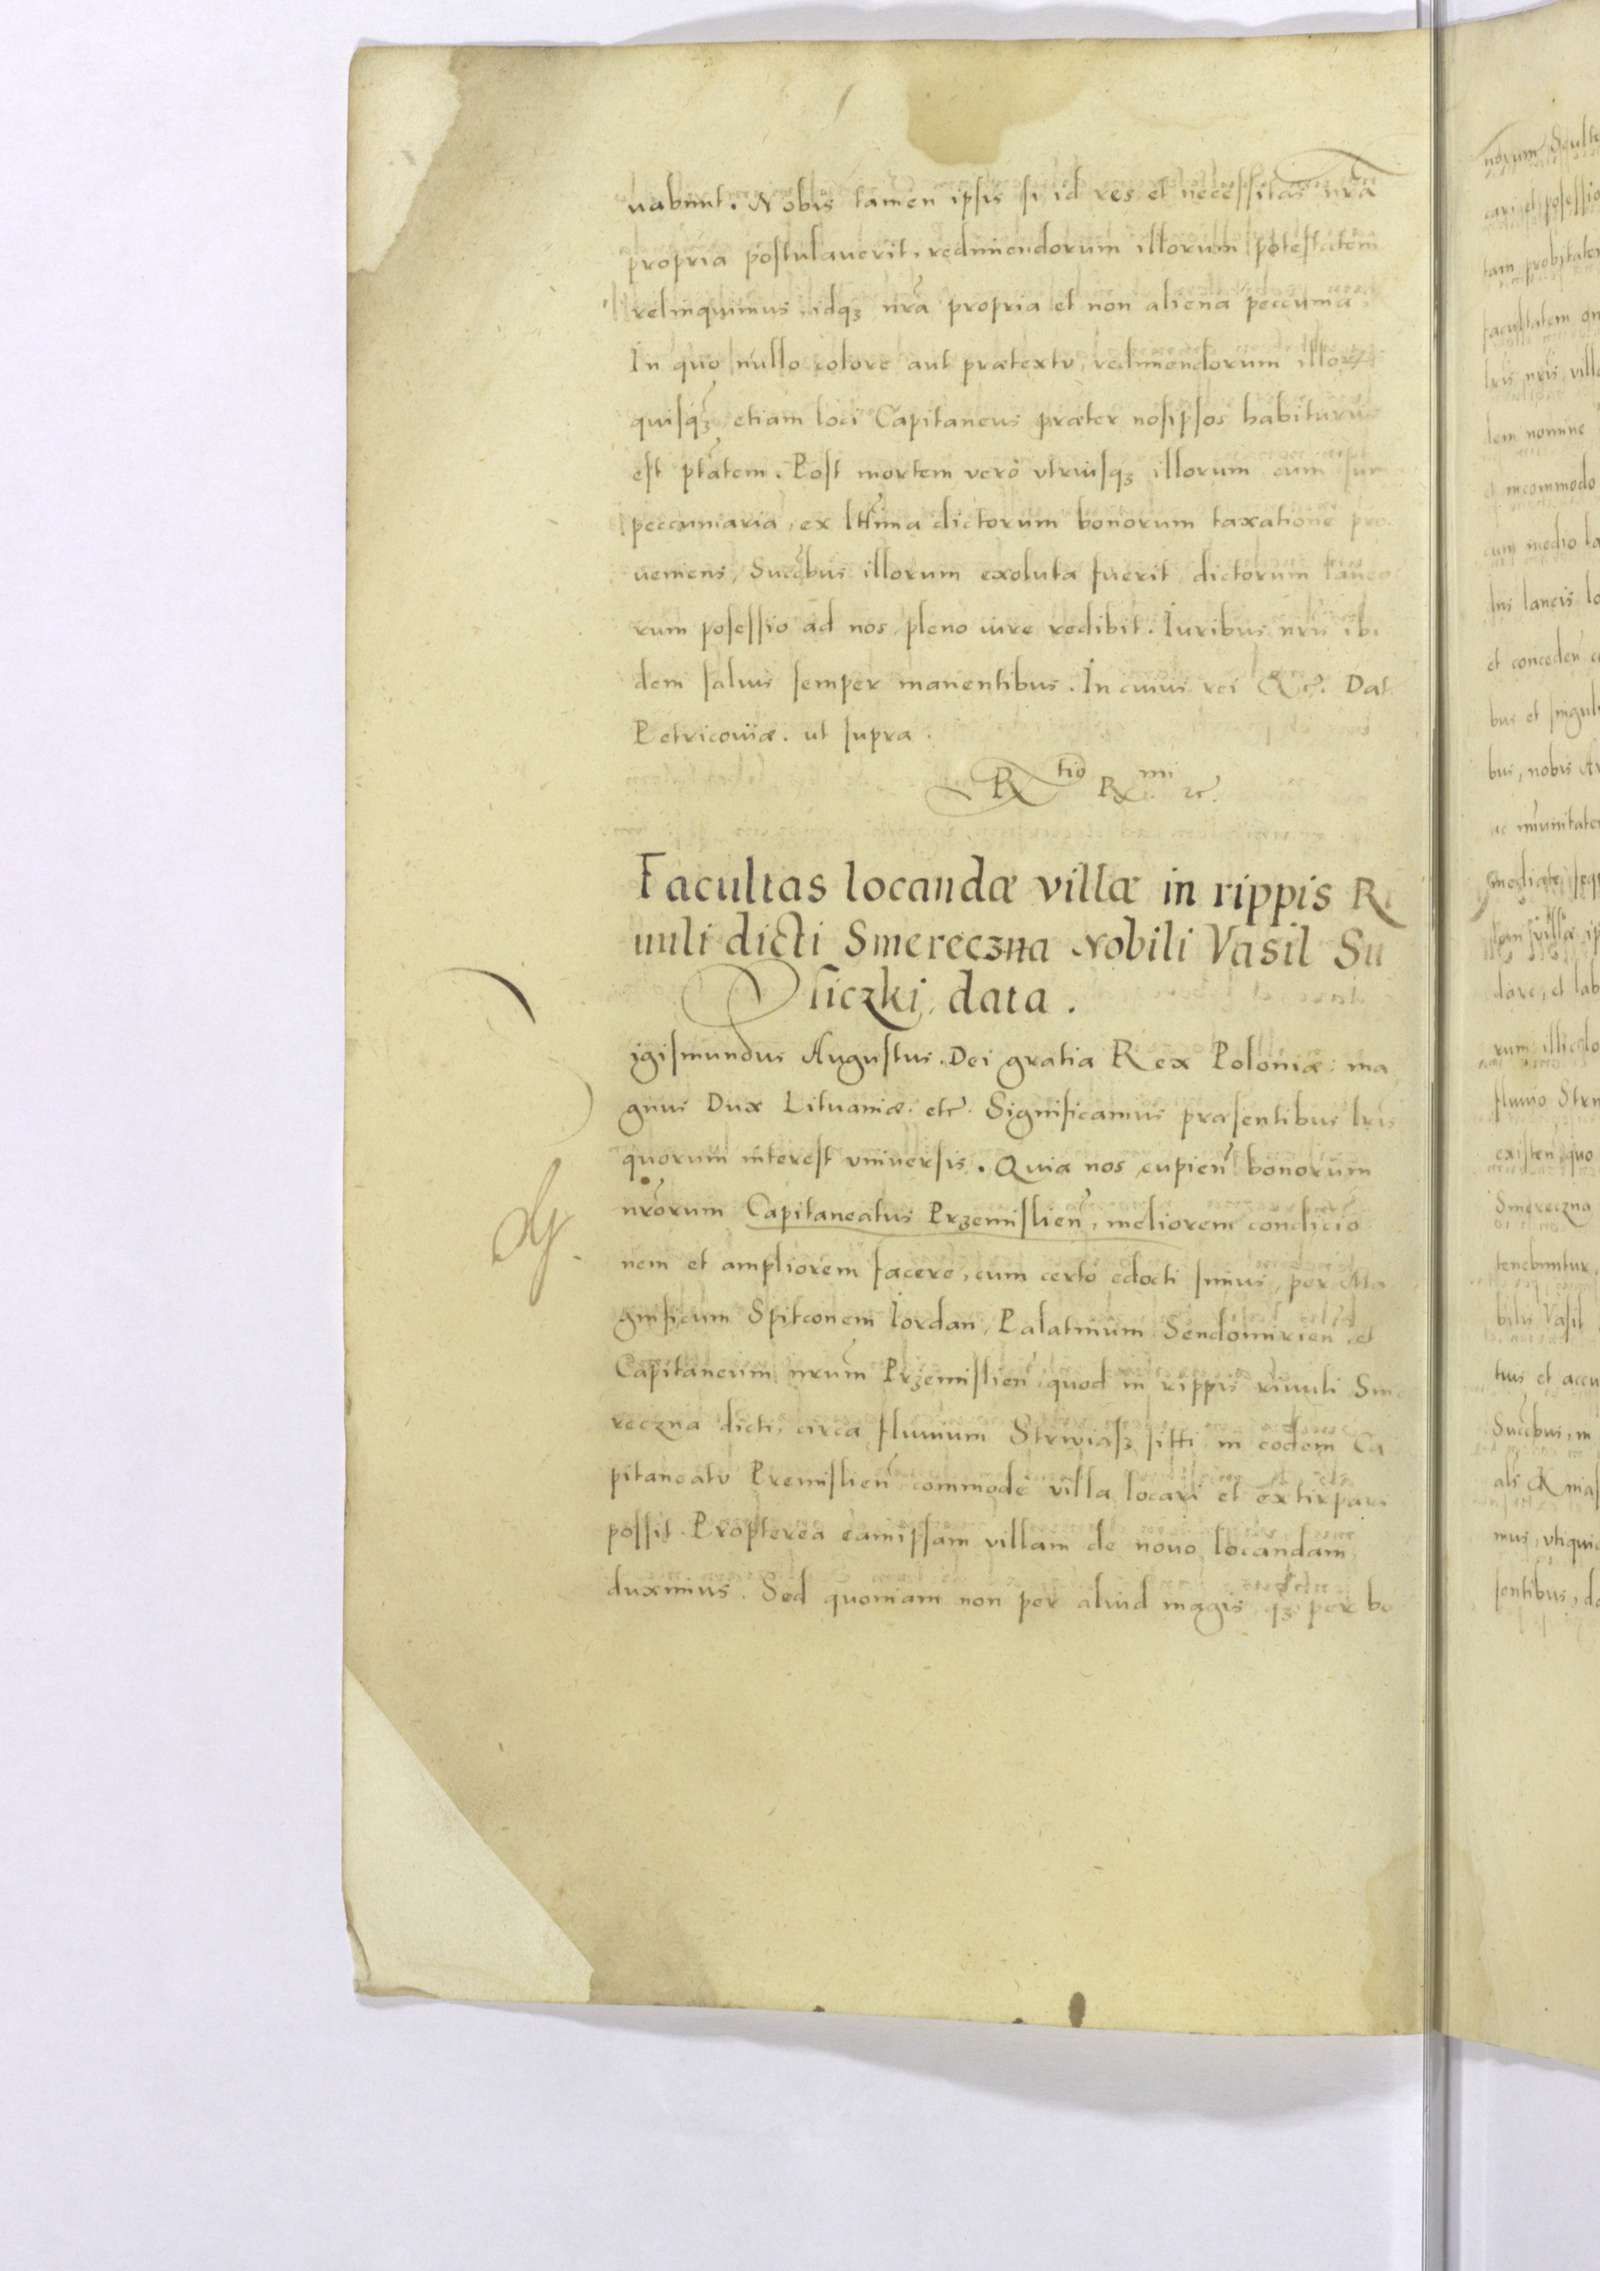 uabunt. Nobis tamen ipsis si id res et necessitas nra
propria postulauerit, redimendorum illorum potestatem
relinquimus, idqз nra propria et non aliena peccunia.
In quo nullo colore aut prætextu, redimendorum illorꝝ
quisqз etiam loci Capitaneus præter nosipsos habiturus
est ptatem. Post mortem verò vtriusqз illorum cum sum
peccuniaria, ex lttima dictorum bonorum taxatione pro
ueniens, Succbus illorum exoluta fuerit, dictorum laneo
rum possessio ad nos pleno iure redibit. Iuribus nris ibi
dem saluis semper manentibus. In cuius rei &c. Dat.
Petricouiæ. ut supra.
Rtio Rmi &c.
Facultas locandæ villæ in rippis Ri
uuli dicti Smereczna Nobili Vasil Su
siczki, data.
igismundus Augustus. Dei gratia Rex Poloniæ. ma
gnus Dux Lituaniæ. etc. Significamus præsentibus lris
quorum interest vniuersis. Quia nos cupien bonorum
nrorum Capitaneatus Przemislien, meliorem condicio
nem et ampliorem facere, cum certo edocti simus, per Ma
gnificum Spitconem Iordan, Palatinum Sendomirien et
Capitaneum nrum Przemislien quod in rippis riuuli Sme
reczna dicti, circa fluuium Strwiasz sitti in eodem Ca
pitaneatu Premislien commodè villa locari et extirpari
possit. Propterea eamipsam villam de nouo locandam
duximus. Sed quoniam non per aliud magis qз per bo
norum Sculte
cari et possessio
tam probitatem
facultatem
lris nris, villa
dem nomine
et incommodo
cum medio la
lus laneis
et conceden
bus et singul
bus, nobis
ac immunitatem
mediate sequ
dare, et lab
rum illi
fluuio Strw
existen quo
Smereczna
tenebuntur,
bilis Vasil
tius et
Succbus, in
mus, vtiqui
sentibus, da